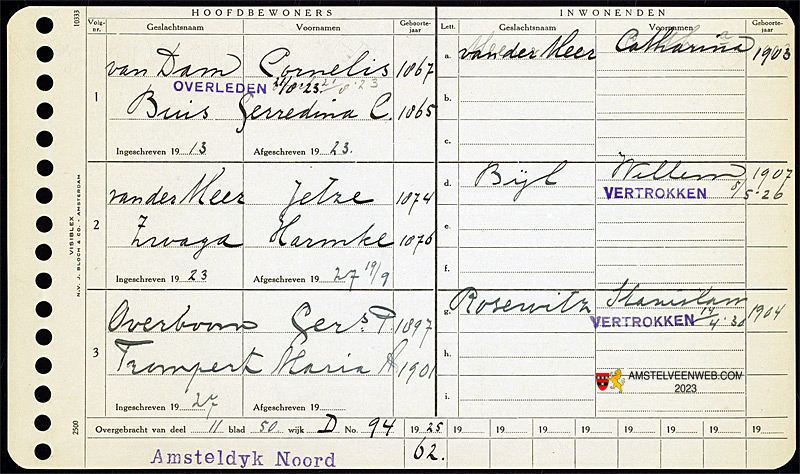 HOOFDBEWONERS
INWONENDEN
10333
Volg-nr.
Geslachtsnaam
Voornamen
Geboorte-jaar
Lett.
Geslachtsnaam
Voornamen
Geboorte-jaar
1
van Dam Cornelis 1867
OVERLEDEN 21/8-23
Buis Gerredina C. 1865
Ingeschreven 19 13 Afgeschreven 19 23.
2
van der Meer Jetze 1874
Zwaga Harmke 1876
Ingeschreven 19 23 Afgeschreven 19 27 19/9
3
Overboom Gers. P. 1897
Trompert Maria A 1901
Ingeschreven 19 27 Afgeschreven 19
a. van der Meer Catharina 1903
b.
c.
d. Bijl Willem 1907
VERTROKKEN 8/5-26
e.
f.
g. Rosewitz Stanislam 1904
VERTROKKEN 14/4-30
h.
i.
VISIBLEX
N.V. J. BLOCH & CO. - AMSTERDAM
2500
AMSTELVEENWEB.COM
2023
Overgebracht van deel 11 blad 50. wijk D No. 94 19 25 19 19 19 19 19 19
Amsteldyk Noord 62.